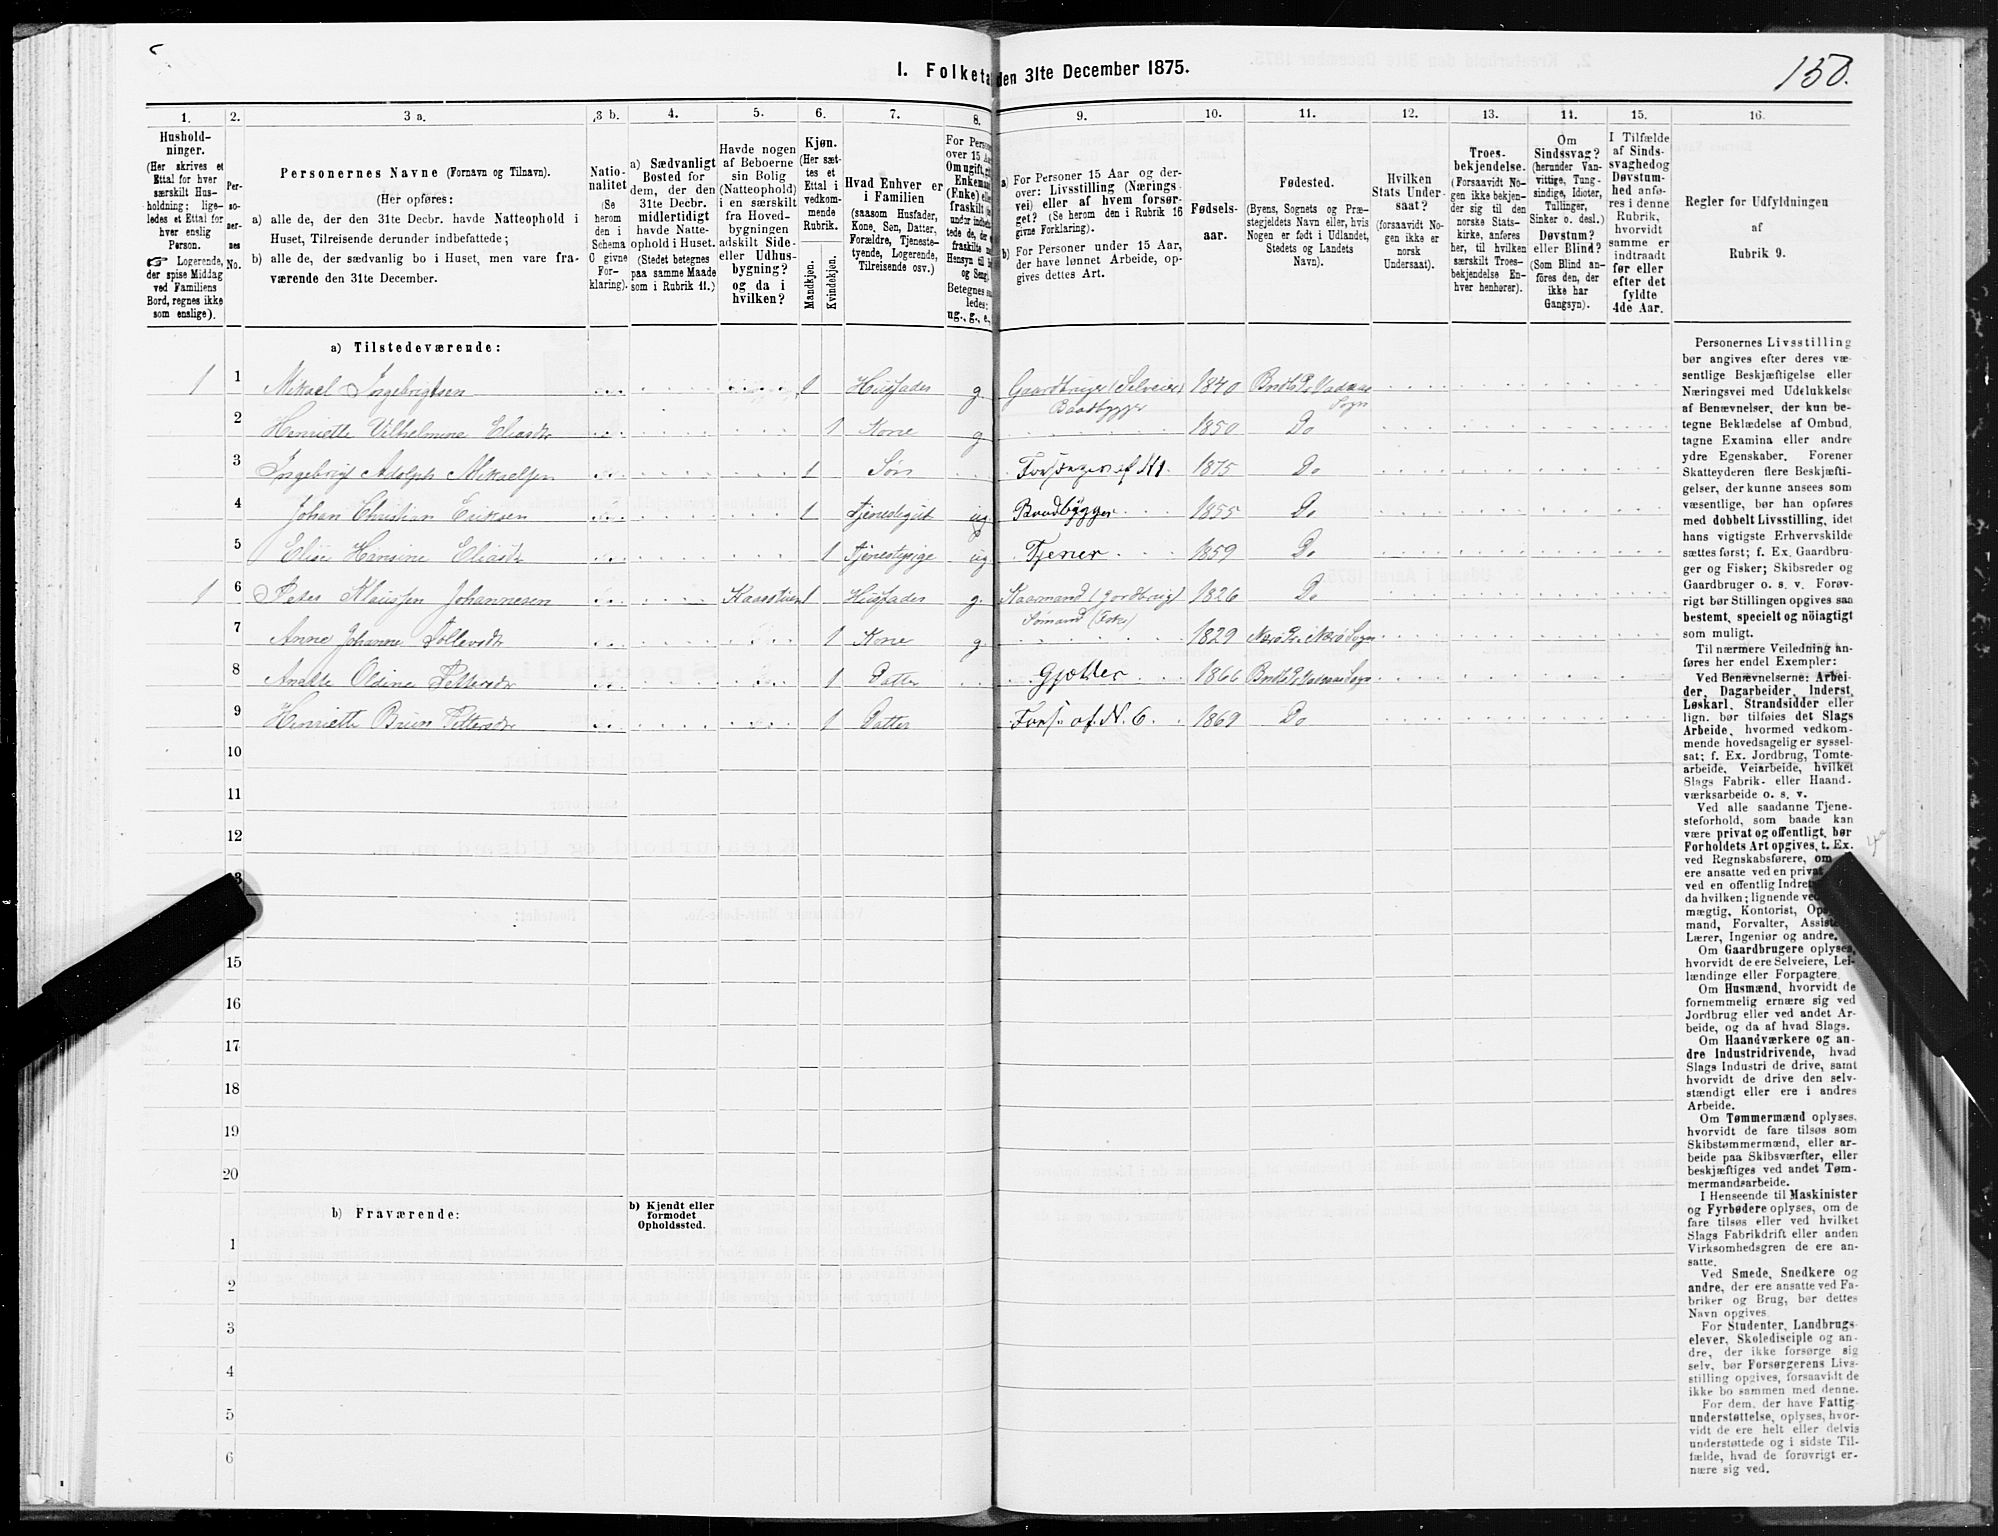 I. Folketa den 31te December 1875.
150.
1.
2.
3 a.
3 b.
4.
5.
6.
7.
8.
9.
10.
11.
12.
13.
14.
15.
16.
Hushold-
ninger.
(Her skrives et
Ettal for hver
særskilt Hus-
holdning; lige-
ledes et Ettal for
hver enslig
Person.
☞ Logerende,
der spise Middag
ved Familiens
Bord, regnes ikke
som enslige).
Per-
so-
ner-
nes
No.
Personernes Navne (Fornavn og Tilnavn).
(Her opføres:
a) alle de, der den 31te Decbr. havde Natteophold i
Huset, Tilreisende derunder indbefattede;
b) alle de, der sædvanlig bo i Huset, men vare fra-
værende den 31te December.
Natio-
nalitet
(Se
herom
den i
Schema
C givne
For-
klaring).
a) Sædvanligt
Bosted for
dem, der den
31te Decbr.
midlertidigt
havde Natte-
ophold i Huset.
(Stedet betegnes
paa samme Maade
som i Rubrik 11.)
Havde nogen
af Beboerne
sin Bolig
(Natteophold)
i en særskilt
fra Hoved-
bygningen
adskilt Side-
eller Udhus-
bygning?
og da i
hvilken?
Kjøn.
(Her sæt-
tes et
Ettal i
vedkom-
mende
Rubrik.
Mandkjøn.
Kvindekjøn.
Hvad Enhver er
i Familien
(saasom Husfader,
Kone, Søn, Datter,
Forældre, Tjeneste-
tyende, Logerende,
Tilreisende osv.)
For Persone
over 15 Aa
Om ugift, g
Enkeman
(Enke) ell
fraskilt
under indbe
tede de, der
fraskilte
Hensyn til
og Seng.
Betegnes s
ledes:
ug., g., e.,
a) For Personer 15 Aar og der-
over: Livsstilling (Nærings-
vei) eller af hvem forsør-
get? (Se herom den i Rubrik 16
givne Forklaring).
b) For Personer under 15 Aar,
der have lønnet Arbeide, op-
gives dettes Art.
Fødsels-
aar.
Fødested.
(Byens, Sognets og Præ-
stegjeldets Navn eller, hvis
Nogen er født i Udlandet,
Stedets og Landets
Navn).
Hvilken
Stats Under-
saat?
(forsaavidt No-
gen ikke er
norsk
Undersaat).
Troes-
bekjendelse.
(Forsaavidt No-
gen ikke bekjen-
der sig til den
norske Stats-
kirke, anføres
her, til hvilken
særskilt Troes-
bekjendelse En-
hver henhører).
Om
Sindssvag?
(herunder Van-
vittige, Tung-
sindige, Idioter,
Tullinger,
Sinker o. desl.)
Døvstum?
eller Blind?
(Som Blind an-
føres den, der
ikke har
Gangsyn).
I Tilfælde
af Sinds-
svaghed og
Døvstum-
hed anfø-
res i denne
Rubrik,
hvorvidt
samme er
indtraadt
før eller
efter det
fyldte
4de Aar.
Regler for Udfyldningen
af
Rubrik 9.
a) Tilstedeværende:
1 1 Mikael Ingebrigtsen 1 Husfader g Gaardbruger (Selveier) Baadbygger 1840 Sogn
2 Henriette Vilhelmine Eliasdr 1 Kone g 1850 Do
3 Ingebrigt Adolph Mikaelsen 1 Søn Forsørges af N1. 1875 Do
4 Johan Christian Eriksen 1 Tjenestegut ug Baadbygger 1855 Do
5 Elise Hansine Eliasdr 1 Tjenestepige ug Tjener 1859 Do
1 6 Peter Klaussen Johannesen 1 Husfader g. 1826 Do
7 Anne Johanne 1 Kone g. 1829 Nærø Pr. Nærø Sogn
8 Anette Oldine Pettersdr 1 Datter Gjætter 1866
9 Henriette Brun Pettersdr 1 Datter Fors. af N. 6. 1869 Do
10
11
12
13
15
16
17
18
19
20
b) Fraværende:
b) Kjendt eller
formodet
Opholdssted.
1
2
3
4
5
6
Personernes Livsstilling
bør angives efter deres væ-
sentlige Beskjæftigelse eller
Næringsvei med Udelukkelse
af Benævnelser, der kun be-
tegne Beklædelse af Ombud,
tagne Examina eller andre
ydre Egenskaber. Forener
Skatteyderen flere Beskjæfti-
gelser, der kunne ansees som
væsentlige, bør han opføres
med dobbelt Livsstilling, idet
hans vigtigste Erhvervskilde
sættes først; f. Ex. Gaardbru-
ger og Fisker; Skibsreder og
Gaardbruger o. s. v. Forøv-
rigt bør Stillingen opgives saa
bestemt, specielt og nøiagtigt
som muligt.
Til nærmere Veiledning an-
føres her endel Exempler:
Ved Benævnelserne: Arbei-
der, Dagarbeider, Inderst,
Løskarl, Strandsidder eller
lign. bør tilføies det Slags
Arbeide, hvormed vedkom-
mende hovedsagelig er syssel-
sat; f. Ex. Jordbrug, Tomte-
arbeide, Veiarbeide, hvilket
Slags Fabrik- eller Haand-
værksarbeide o. s. v.
Ved alle saadanne Tjene-
steforhold, som baade kan
være privat og offentligt, bør
Forholdets Art opgives, t. Ex.
ved Regnskabsførere, om
ere ansatte ved en privat
ved en offentlig Indret
da hvilken; lignende ved
mægtig, Kontorist, Ops
mand, Forvalter, Assiste
Lærer, Ingeniør og andre.
Om Gaardbrugere oplyses,
hvorvidt de ere Selveiere, Lei-
lændinge eller Forpagtere.
Om Husmænd, hvorvidt de
fornemmelig ernære sig ved
Jordbrug eller ved andet Ar-
beide, og da af hvad Slags.
Om Haandværkere og an-
dre Industridrivende, hvad
Slags Industri de drive, samt
hvorvidt de drive den selv-
stændigt eller ere i andres
Arbeide.
Om Tømmermænd oplyses,
hvorvidt de fare tilsøs som
Skibstømmermænd, eller ar-
beide paa Skibsværfter, eller
beskjæftiges ved andet Tøm-
mermandsarbeide.
I Henseende til Maskinister
og Fyrbødere oplyses, om de
fare tilsøs eller ved hvilket
Slags Fabrikdrift eller anden
Virksomhedsgren de ere an-
satte.
Ved Smede, Snedkere og
andre, der ere ansatte ved Fa-
briker og Brug, bør dettes
Navn opgives.
For Studenter, Landbrugs-
elever, Skoledisciple og an-
dre, der ikke forsørge sig
selv, bør Forsørgerens Livs-
stilling opgives, forsaavidt de
ikke bo sammen med denne.
For dem, der have Fattig-
understøttelse, oplyses, hvor-
vidt de ere helt eller delvis
understøttede og i sidste Til-
fælde, hvad de forøvrigt er-
nære sig ved.